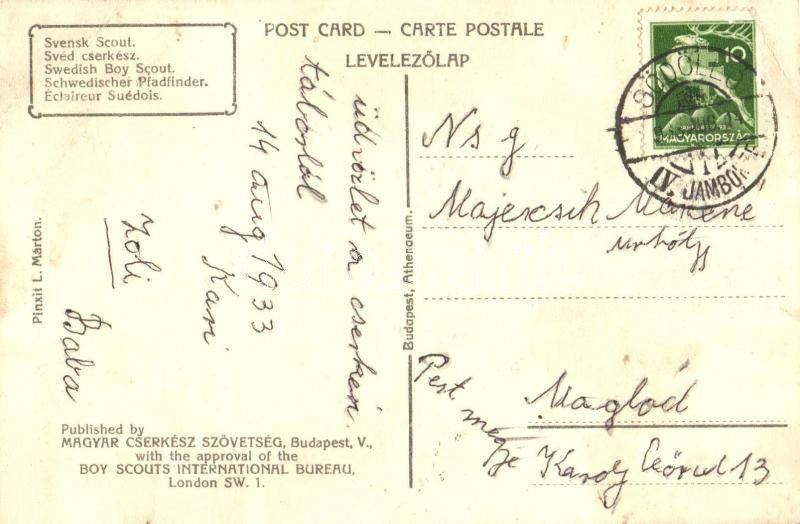 POST CARD — CARTE POSTALE
LEVELEZŐLAP
Svensk Scout.
Svéd cserkész.
Swedish Boy Scout.
Schwedischer Pfadfinder.
Éclaireur Suédois.
10
MAGYARORSZÁG
GÖDÖLLŐ
IV. JAMBOR
üdvözlet a cserkész
táborból
14 aug 1933
Kari
Zoli
Baba
Ns g
Majercsik
Maglód
Pest megye
Károly 13
Pinxit L. Márton.
Budapest, Athenaeum.
Published by
MAGYAR CSERKÉSZ SZÖVETSÉG, Budapest, V.,
with the approval of the
BOY SCOUTS INTERNATIONAL BUREAU,
London SW. 1.